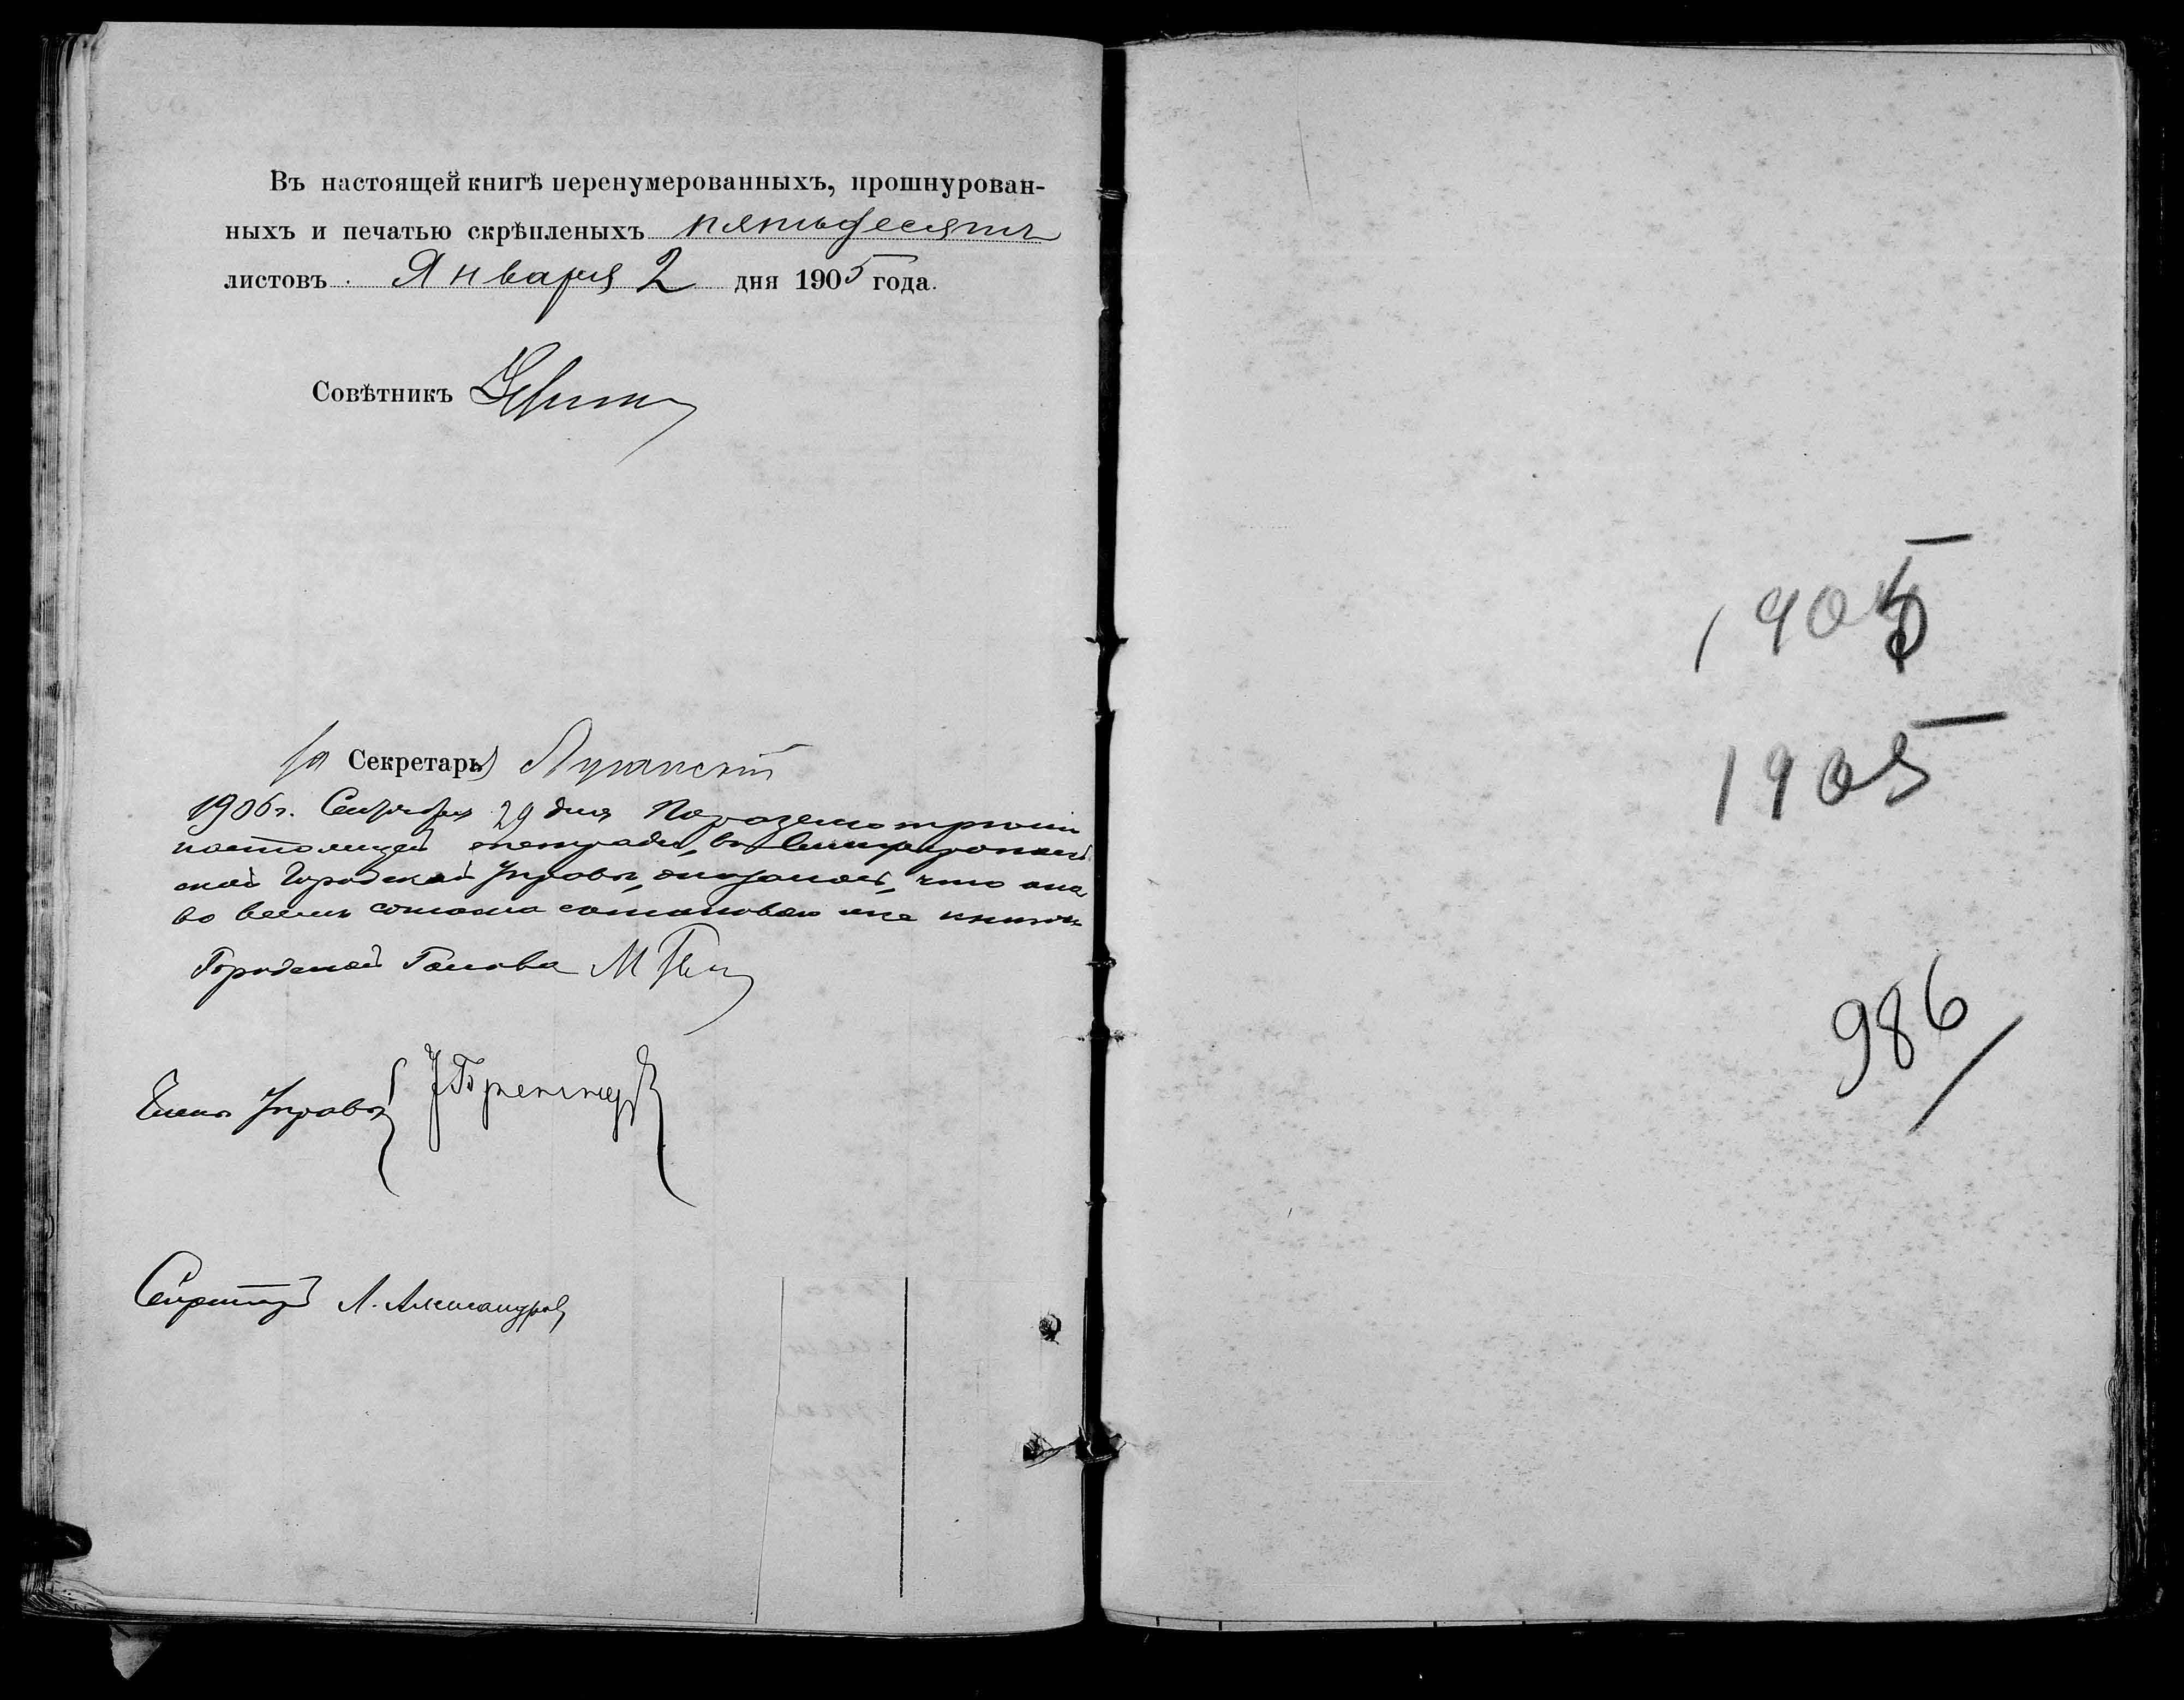 Въ настоящей книгѣ перенумерованныхъ, прошнурован-
ныхъ и печатью скрѣпленыхъ пятьдесятъ
листовъ Января 2 дня 1905 года.
Совѣтникъ
За Секретаря Луганскій
1906 г. Сентября 29 дня По разсмотрѣнiи
настоящей тетради, въ Симферополь
ской Городской Управѣ, оказалось, что она
во всемъ согласна съ
Городской Голова М
Членъ Управы
Секретарь Л. Александровъ
1905
1905
986